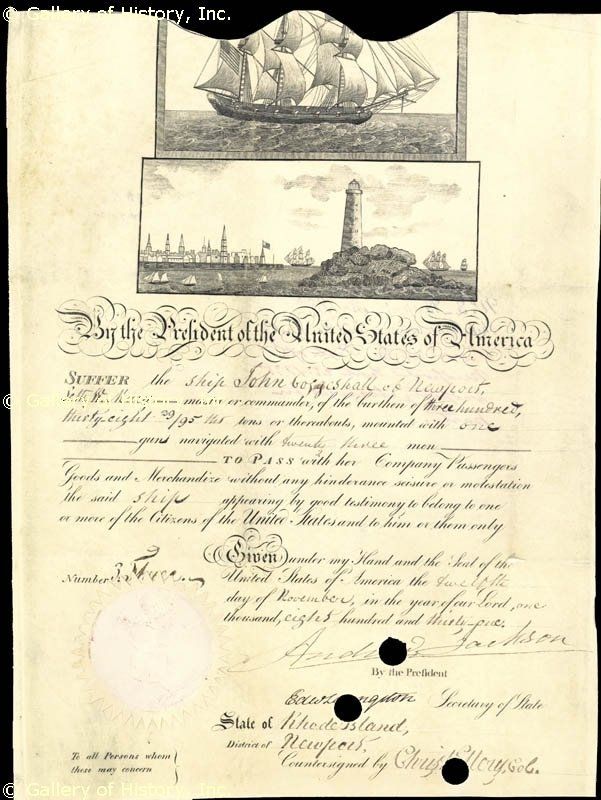 © Gallery of History, Inc.
By the President of the United States of America
SUFFER the ship John Coggeshall of Newport,
master or commander, of the burthen of three hundred,
thirty eight 39/95 ths tons or thereabouts, mounted with one
guns navigated with twenty three men
TO PASS with her Company Passengers
Goods and Merchandize without any hinderance seisure or molestation
the said ship appearing by good testimony to belong to one
or more of the Citizens of the United States and to him or them only
Given under my Hand and the Seal of the
Number 3
United States of America the twelfth
day of November, in the year of our Lord, one
thousand, eight hundred and thirty-one.
Andrew Jackson
By the President
Edw Livingston Secretary of State
State of Rhode Island,
District of Newport,
Countersigned by Chris Ellery, Col.
To all Persons whom
these may concern
© Gallery of History, Inc.